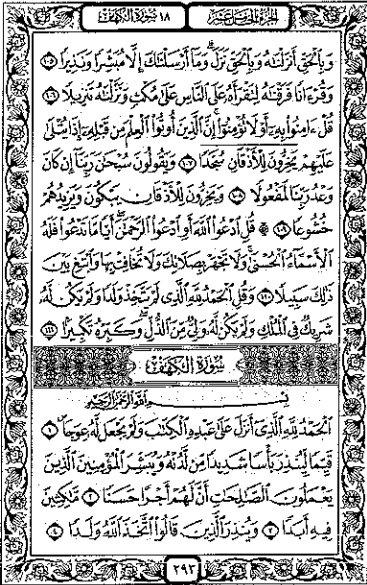 الجزء الخامس عشر ١٨ سورة الكهف
وَبِالْحَقِّ أَنزَلْنَاهُ وَبِالْحَقِّ نَزَلَ وَمَا أَرْسَلْنَاكَ إِلَّا مُبَشِّرًا وَنَذِيرًا ١٠٥
وَقُرْءَانًا فَرَقْنَاهُ لِتَقْرَأَهُ عَلَى النَّاسِ عَلَى مُكْثٍ وَنَزَّلْنَاهُ تَنزِيلًا ١٠٦
قُلْ ءَامِنُوا بِهِ أَوْ لَا تُؤْمِنُوا إِنَّ الَّذِينَ أُوتُوا الْعِلْمَ مِن قَبْلِهِ إِذَا يُتْلَى
عَلَيْهِمْ يَخِرُّونَ لِلْأَذْقَانِ سُجَّدًا ١٠٧ وَيَقُولُونَ سُبْحَانَ رَبِّنَا إِن كَانَ
وَعْدُ رَبِّنَا لَمَفْعُولًا ١٠٨ وَيَخِرُّونَ لِلْأَذْقَانِ يَبْكُونَ وَيَزِيدُهُمْ
خُشُوعًا ١٠٩ ۞ قُلِ ادْعُوا اللَّهَ أَوِ ادْعُوا الرَّحْمَٰنَ أَيًّا مَّا تَدْعُوا فَلَهُ
الْأَسْمَاءُ الْحُسْنَى وَلَا تَجْهَرْ بِصَلَاتِكَ وَلَا تُخَافِتْ بِهَا وَابْتَغِ بَيْنَ
ذَٰلِكَ سَبِيلًا ١١٠ وَقُلِ الْحَمْدُ لِلَّهِ الَّذِي لَمْ يَتَّخِذْ وَلَدًا وَلَمْ يَكُن لَّهُ
شَرِيكٌ فِي الْمُلْكِ وَلَمْ يَكُن لَّهُ وَلِيٌّ مِّنَ الذُّلِّ وَكَبِّرْهُ تَكْبِيرًا ١١١
سُورَةُ الْكَهْفِ
بِسْمِ اللَّهِ الرَّحْمَٰنِ الرَّحِيمِ
الْحَمْدُ لِلَّهِ الَّذِي أَنزَلَ عَلَى عَبْدِهِ الْكِتَابَ وَلَمْ يَجْعَل لَّهُ عِوَجًا ١
قَيِّمًا لِّيُنذِرَ بَأْسًا شَدِيدًا مِّن لَّدُنْهُ وَيُبَشِّرَ الْمُؤْمِنِينَ الَّذِينَ
يَعْمَلُونَ الصَّالِحَاتِ أَنَّ لَهُمْ أَجْرًا حَسَنًا ٢ مَّاكِثِينَ
فِيهِ أَبَدًا ٣ وَيُنذِرَ الَّذِينَ قَالُوا اتَّخَذَ اللَّهُ وَلَدًا ٤
٢٩٣